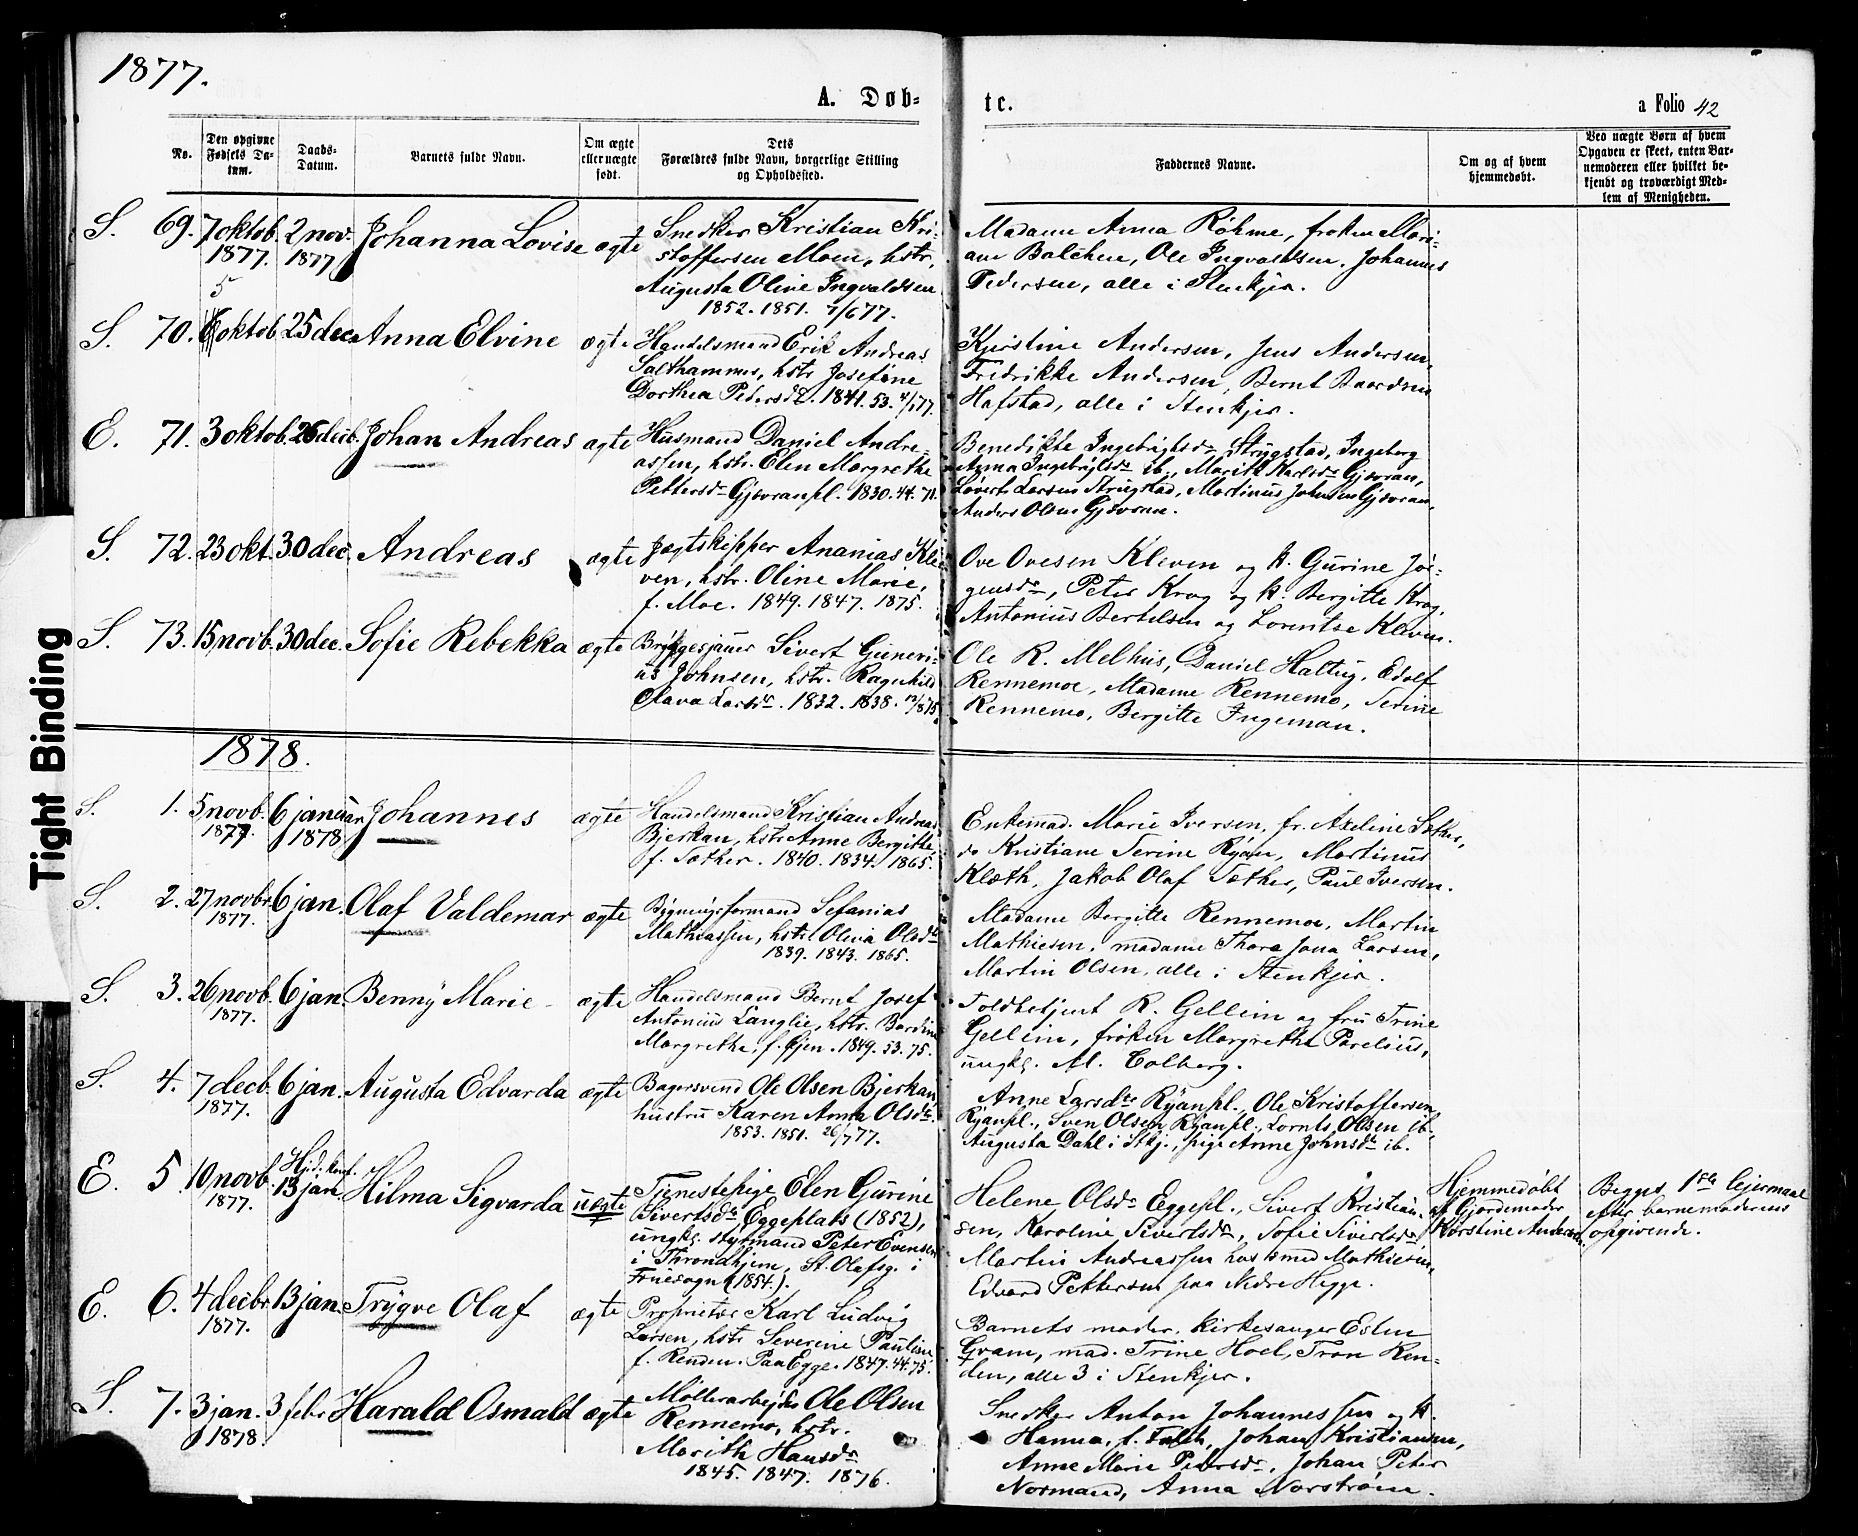 1877.
A. Døb-
te.
a Folio 42
No.
Den opgivne
Fødsels Da-
tum.
Daabs-
Datum.
Barnets fulde Navn.
Om ægte
eller uægte
født.
Dets
Forældres fulde Navn, borgerlige Stilling
og Opholdssted.
Faddernes Navne.
Om og af hvem
hjemmedøbt.
Ved uægte Børn af hvem
Opgaven er skeet, enten Bar-
nemoderen eller hvilket be-
kjendt og troværdigt Med-
lem af Menigheden.
S. 69. 7 oktob. 1877. 2 nov. 1877 Johanna Lovise ægte
Snedker Kristian Kri-
stoffersen Moen, hstr.
Augusta Oline Ingvaldsen
1852. 1851. 7/6 77.
Madame Anna Røhme, frøken Mari-
ane Balchen, Ole Ingvaldsen, Johannes
Pedersen, alle i Stenkjær.
5
S. 70. 6 oktob. 25 dec. Anna Elvine ægte
Handelsmand Erik Andreas
Salthammer, hstr. Josefine
Dorthea Petersdr. 1841. 53. 77.
Kjerstine Andersen, Jens Andersen,
Fredrikke Andersen, Bernt Baardsen
Hafstad, alle i Stenkjær.
E. 71. 3 oktob. 26 decb. Johan Andreas ægte
Husmand Daniel Andre-
assen, hstr. Elen Margrethe
Pettersdr Gjævranpl. 1830. 44. 71.
Benedikte Ingebrigtsdr Strugstad, Ingeborg
Anna Ingebrigtsdr ib., Marith Karlsdr Gjævran,
Sivert Larsen Strugstad, Martinus Johnsen Gjævran,
Anders Olsen Gjævran.
S. 72. 23 okt. 30 dec. Andreas ægte
Jægtskipper Ananias Kle-
ven, hstr. Oline Marie,
f. Moe. 1849. 1847. 1875.
Ove Ovesen Kleven og k. Gurine Jør-
gensdr, Peter Krog og k. Bergitte Krog,
Antonius Bertelsen og Lorentse Kleven.
S. 73. 15 novb. 30 dec. Sofie Rebekka ægte
Bryggesjauer Sivert Guneri-
us Johnsen, hstr. Ragnhild
Olava Larsdr. 1832. 1838. 1875
Ole R. Melhus, Daniel Haltug, Edolf
Rennemoe, Madame Rennemo, Serine
Rennemo, Bergitte Ingeman.
1878.
S. 1. 5 novb. 1877. 6 januar 1878 Johannes ægte
Handelsmand Kristian Andreas
Bjerkan, hstr. Anne Bergitte,
f. Sæther. 1840. 1834. 1865.
Enkemad. Marie Iversen, fr. Axeline Sæther,
do Kristiane Serine Ryan, Martinus
Klæth, Jakob Olaf Sæther, Paul Iversen.
S. 2. 27 novbr. 1877. 6 jan. Olaf Valdemar ægte
Bygningsformand Sefanias
Mathiassen, hstr. Olivia Olsdtr
1839. 1843. 1865.
Madame Bergitte Rennemoe, Martin
Mathiesen, madame Thora Jona Larsen,
Martin Olsen, alle i Stenkjær.
S. 3. 26 novb. 1877. 6 jan. Benny Marie ægte
Handelsmand Bernt Josef
Antonius Langlie, hstr. Bardine
Margrethe, f. Gjen. 1849. 53. 75.
Toldbetjent R. Gellein og fru Trine
Gellein, frøken Margrethe Parelius,
ungk. M. Colberg.
S. 4. 7 decb. 1877. 6 jan. Augusta Edvarda ægte
Bagersvend Ole Olsen Bjerkan,
hustru Karen Anna Olsdtr.
1853. 1851. 26/7 77.
Anne Larsdtr Ryanpl., Ole Kristoffersen
Ryanpl., Sven Olsen Ryanpl., Lornts Olsen ib.,
Augusta Dahl i Stkj., pige Anne Johnsdtr ib.
E. 5. 10 novb. 1877. Hjd. konf. 13 jan. Hilma Sigvarda uægte
Tjenestepige Elen Gurine
Sivertsdtr Eggeplads (1852),
ungk. styrmand Peter Evensen
i Throndhjem, St. Olafsg. i
Fruesogn (1854).
Helene Olsdr Eggepl., Sivert Kristian-
sen, Karoline Sivertsdr, Sofie Sivertsdr,
Martin Andreassen husmed Mathiesen,
Edvard Pettersen paa Nedre Hegge.
Hjemmedøbt
af Gjordemoder
Kjerstine Andersen.
Begges 1ste lejermaal
efter barnemoderens
opgivende.
E. 6. 4 decbr. 1877. 13 jan. Trygve Olaf ægte
Proprietær Karl Ludvig
Larsen, hstr. Severine Pauline
f. Renden. Paa Egge. 1847. 44. 75.
Barnets moder, kirkesanger Eslen
Gram, mad. Trine Hoel, Tron Ren-
den, alle 3 i Stenkjær.
S. 7. 3 jan. 1878. 3 febr Harald Osmald ægte
Møllerarbejder Ole Olsen
Rennemo, hstr.
Marith Hansdr
1845. 1847. 1876.
Snedker Anton Johannessen og k.
Hanna, f. Falch, Johan Kristiansen,
Anne Marie Petersdr, Johan Peter
Normand, Anna Norstrøm.
Tight Binding